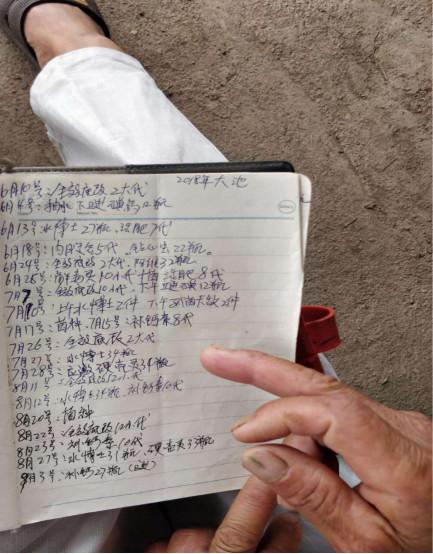 2018年大池
6月10号:全效底改2大代
6月4号:抽水 下进碘钙12瓶
6月13号水博士27瓶,滋肥7代
6月18号:内 5代 22瓶
6月24号:全效底改2大代 32瓶
6月28号:解毒灵10小代 十菌滋肥8代
7月7号:全效底改10小代,下午进碘12瓶
7月10号:上午水博士2件 下午 2件
7月17号:苗种.7月15号:补钙素8代
7月26号:全效底改2大代
7月27号:水博士31瓶
7月28号:应激碘毒灵31瓶
8月11号:全效底改12小代
8月12号:水博士31瓶 补钙素10代
8月20号:苗种
8月22号:全效底改10小代
8月23号:补钙素10代
8月27号:水博士31瓶,碘毒灵31瓶
9月3号:补钙27瓶